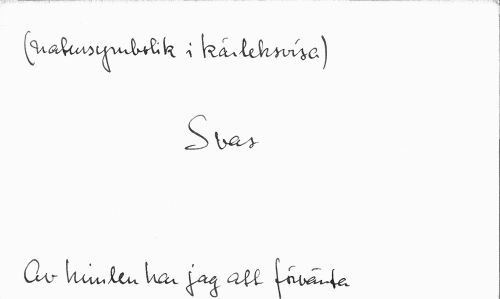 (natursymbolik i kärleksvisa)
Svar
Av himlen har jag att förvänta